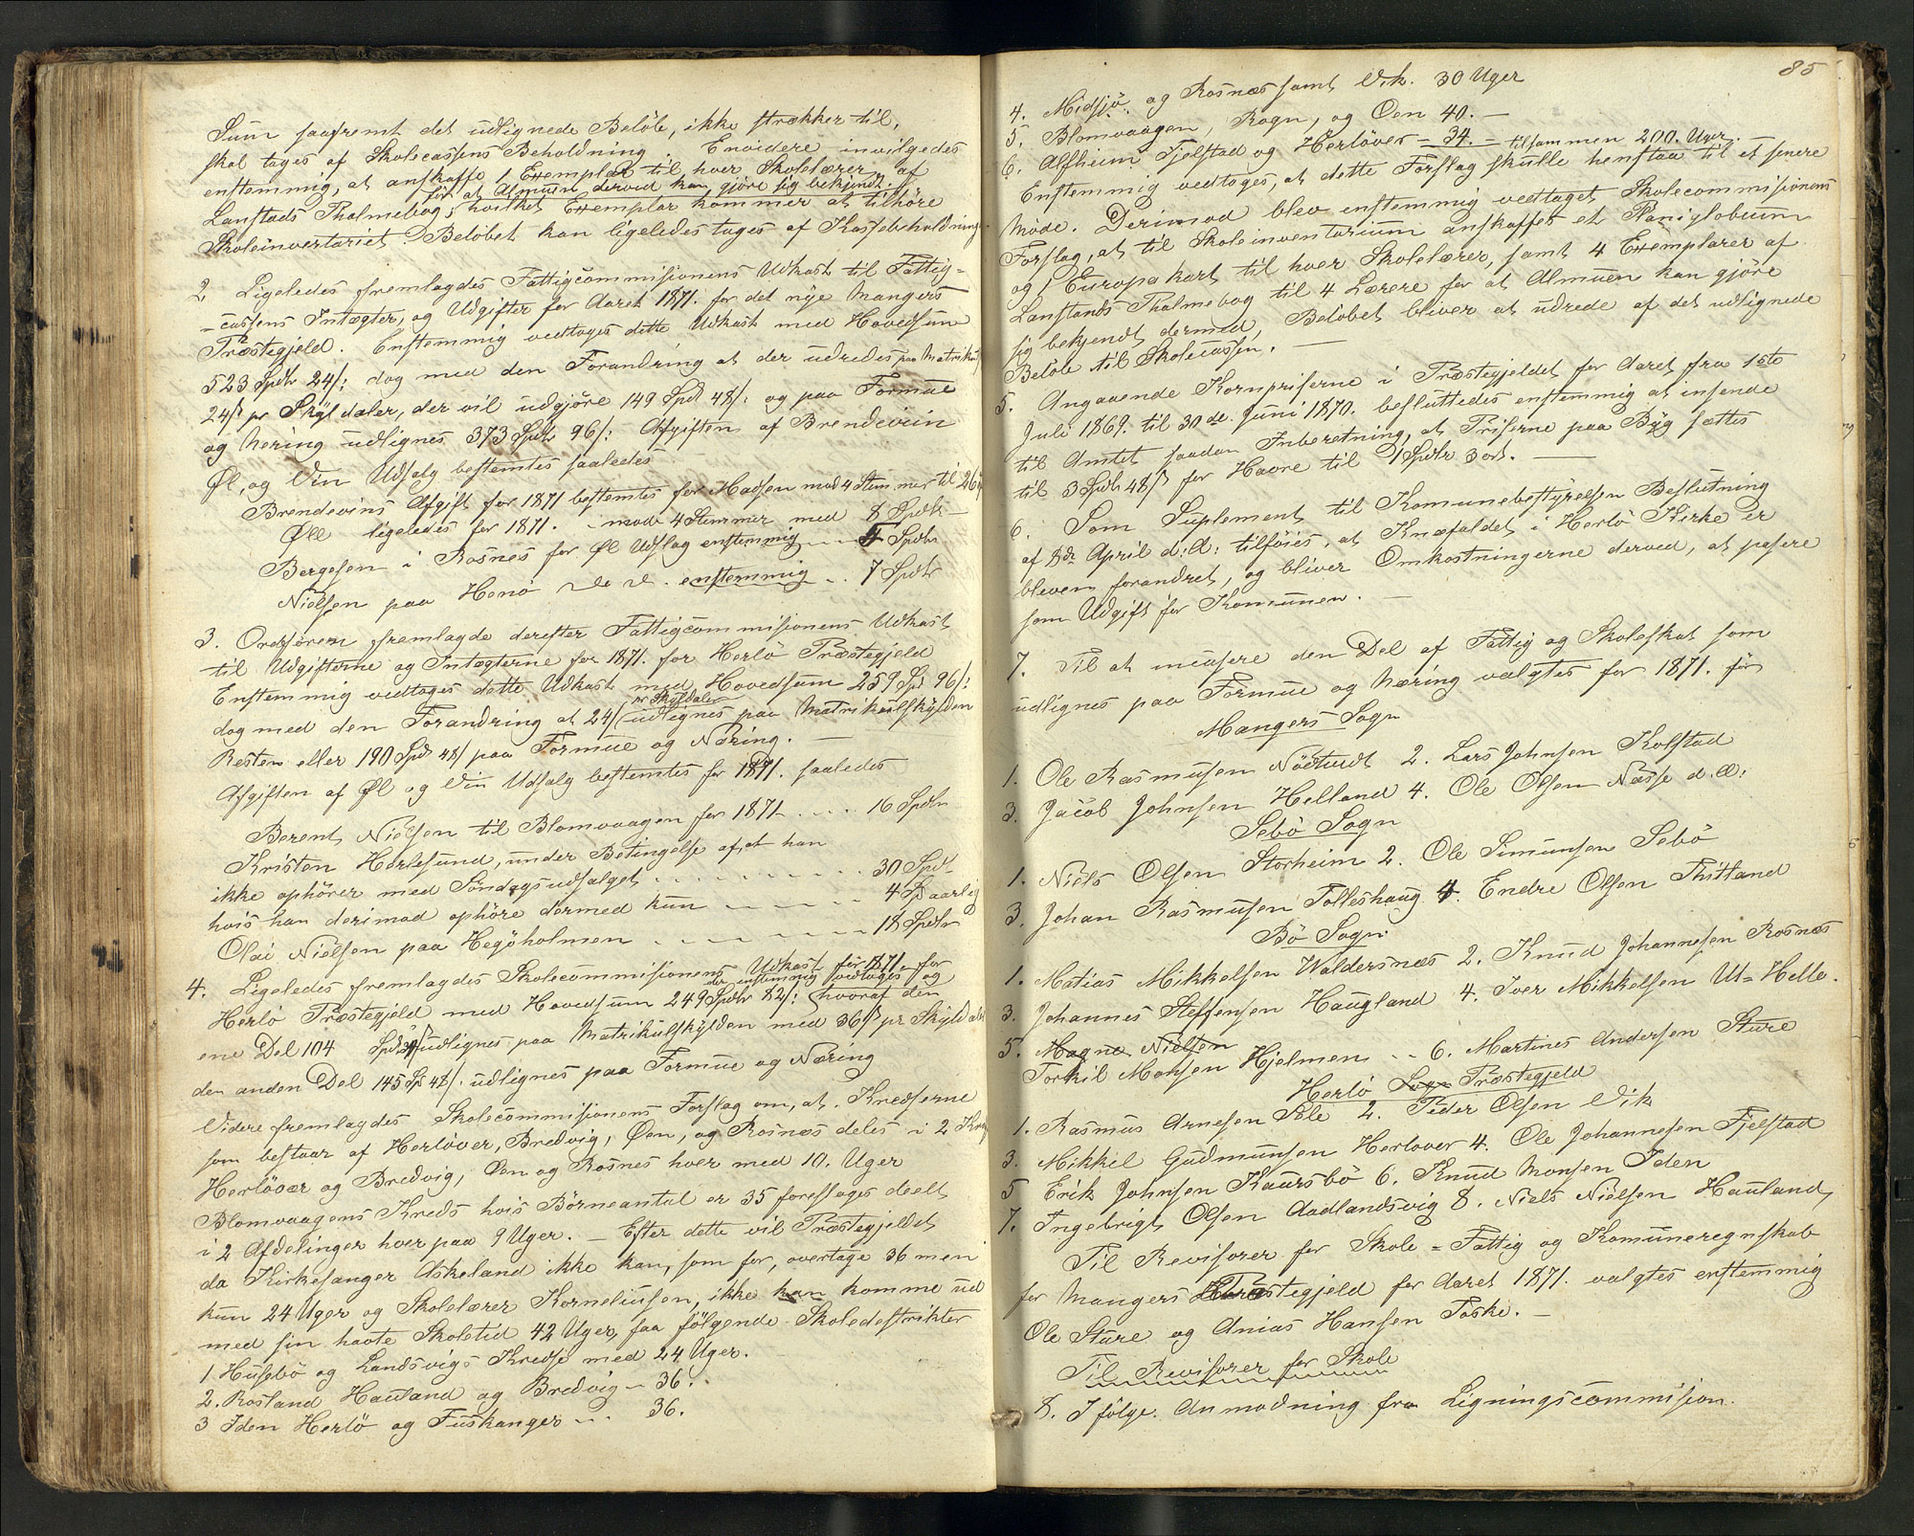 Sum saafremt det udlignede Beløb, ikke strækker til,
skal tages af Skolecassens Beholdning. Envidere invilgedes
enstemmig, at anskaffe 1 Exemplar til hver Skolelærer af
for at Almuen derved kan gjøre sig bekjendt.
Lanstads Psalmebog, hvilket Exemplar kommer at tilhøre
Skoleinventariet. Beløbet kan ligeledes tages af Kassebeholdning
2 Ligeledes fremlagdes Fattigcommisionens Udkast til Fattig-
-cassens Intægter, og Udgifter for Aaret 1871. for det nye Mangers
Præstegjeld. Enstemmig vedtoges dette Udkast med Hovedsum
523 Spdlr 24/: dog med den Forandring at der udredes paa Matrikul
24/ pr Skyldaler, der vil udgjøre 149 Spd 48/: og paa Formue
og Nering udlignes 373 Spdlr 96/: Afgiften af Brendeviin
Øl, og Vin Udsalg bestemtes saaledes
Brendevins Afgift for 1871 bestemtes for Madsen mod 4 Stemmer til 26
Øll ligeledes for 1871. - mode 4 Stemmer med 8 Spdlr -
Bergesen i Rosnes for Øl Udslag enstemmig - - 5 Spdlr
Nielsen paa Henø do do. enstemmig - . 7 Spdlr
3. Ordføreren fremlagde derefter Fattigcommisionens Udkast
til Udgifterne og Intægterne for 1871. for Herlø Præstegjeld
Enstemmig vedtoges dette Udkast med Hovedsum 259 Spd 96/:
pr Skyldaler
dog med den Forandring at 24/ udlignes paa Matrikulskylden
Resten eller 190 Spd 48/ paa Formue og Næring. —
Afgiften af Øl og Vin Udsalg bestemtes for 1871. saaledes
Berent Nielsen til Blomvaagen for 1871 . . . . 16 Spdlr
Kristen Herlesund, under Betingelse af, at han
ikke ophører med Søndagsudsalget . . . . . . . . 30 Spd
hvis han derimod ophøre dermed kun - - - - - 4 Sp aarlig
Olai Nielsen paa Hegøholmen . - - - - - - - 18 Spdlr
4. Ligeledes fremlagdes Skolecommisionens Udkast for 1871. for
der enstemmig vedtoges og
Herlø Præstegjeld med Hovedsum 249 Spdlr 82/: hvoraf den
ene Del 104 Spd udlignes paa Matrikulskylden med 36/ pr Skyldaler
den anden Del 145 Sp 48/. udlignes paa Formue og Næring
Videre fremlagdes Skolecommisionens Forslag om, at. Kredserne
som bestaar af Herløver, Bredvig, Øen, og Rosnæs deles i 2
Herløvær og Bredvig, Øen og Rosnes hver med 10. Uger
Blomvaagens Kreds hvis Børneantal er 35 foreslages deelt
i 2 Afdelinger hver paa 9 Uger. - Efter dette vil Præstegjeldet
da Kirkesanger Askeland ikke kan, som før, overtage 36 men
kun 24 Uger og Skolelærer Korneliussen, ikke kan komme ud
med sin havte Skoletid 42 Uger, faa følgende Skoledestrikter
1 Husebø og Landsvigs Kredse med 24 Uger.
2. Rosland Hauland og Bredvig - 36. -
3 Iden Herlø og Fuskanger - - 36.
85
4. Midsjø. og Rosnæs samt Vik. 30 Uger
5. Blomvaagen, Rogn, og Øen 40. -
6. Alfheim Fjelstad og Herløver = 34. = tilsammen 200. Uger. -
Enstemmig vedtoges, at dette Forslag skulle henstaa til et senere
Møde. Derimod blev enstemmig vedtaget Skolecommisionens
Forslag, at til Skoleinventarium anskaffes et Planiglobium
og 1 Europa kart til hver Skolelærer, samt 4 Exemplarer af
Lanstands Psalmebog til 4 Lærere for at Almuen kan gjøre
sig bekjendt dermed, Beløbet bliver at udrede af det udlignede
Beløb til Skolecassen. —
5. Angaaende Kornpriserne i Præstegjeldet for Aaret fra 1ste
Juli 1869. til 30de Juni 1870. besluttedes enstemmig at insende
til Amtet saadan Inberetning, at Priserne paa Byg sættes
til 3 Spdlr 48/ for Havre til 1 Spdlr 3 ort. —
6. Som Suplement til Komunebestyrelsen Beslutning
af 8de April d: A: tilføies, at Knæfaldet i Herlø Kirke er
bleven forandret, og bliver Omkostningerne derved, at pasere
som Udgift for Komunen. —
7. Til at incasere den Del af Fattig og Skoleskat som
udlignes paa Formue og Næring valgtes for 1871. før
Mangers Sogn
1. Ole Rasmusen Nødtvedt 2. Lars Johnsen Kolstad
3. Jacob Johnsen Helland 4. Ole Olsen Næsse d. Æ:
Sebø Sogn
1. Niels Olsen Storheim 2. Ole Simunsen Sebø
3. Johan Rasmusen Tolleshaug 4. Endre Olsen
Bø Sogn
1. Matias Mikkelsen Waldersnæs 2. Knud Johannesen Rosnæs
3. Johannes Steffensen Haugland 4. Iver Mikkelsen Ut=Helle.
5. Magne Nielsen
Torkil Monsen Hjelmen - - 6. Martines Andersen Sture
Herlø Sogn Præstegjeld
1. Rasmus Arnesen Pile 2. Peder Olsen Vik
3. Mikkel Gudmunsen Herløver 4. Ole Johannesen Fjelstad
5 Erik Johnsen Kaursbø 6. Knud Monsen Iden
7. Ingebrigt Olsen Aadlandsvig 8. Niels Nielsen Hauland,
Til Revisorer for Skole = Fattig og Komuneregnskab
for Mangers Præstegjeld for Aaret 1871. valgtes enstemmig
Ole Sture og Anias Hansen Toske. —
Til Revisorer for Skole
8. I følge. Anmodning fra Ligningscommision.